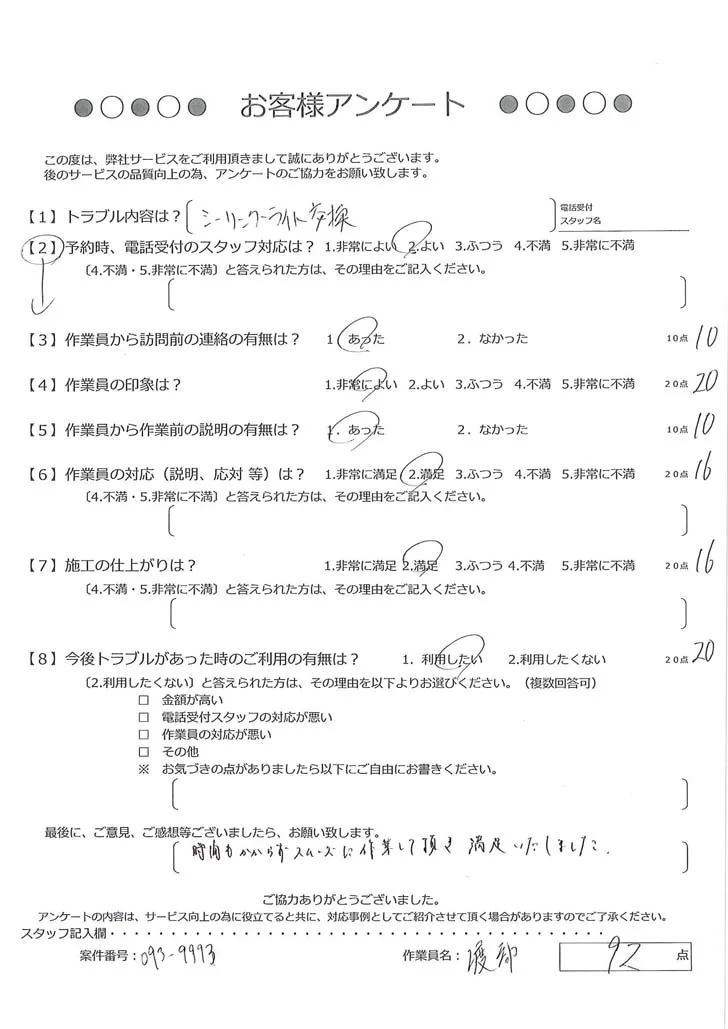 ●○●○● お客様アンケート ●○●○●
この度は、弊社サービスをご利用頂きまして誠にありがとうございます。
後のサービスの品質向上の為、アンケートのご協力をお願い致します。
【1】トラブル内容は？ シーリングライト交換 電話受付
スタッフ名
【2】予約時、電話受付のスタッフ対応は？ 1.非常によい 2.よい 3.ふつう 4.不満 5.非常に不満
〔4.不満・5.非常に不満〕と答えられた方は、その理由をご記入ください。
【3】作業員から訪問前の連絡の有無は？ 1. あった 2. なかった 10点 10
【4】作業員の印象は？ 1.非常によい 2.よい 3.ふつう 4.不満 5.非常に不満 20点 20
【5】作業員から作業前の説明の有無は？ 1. あった 2. なかった 10点 10
【6】作業員の対応（説明、応対 等）は？ 1.非常に満足 2.満足 3.ふつう 4.不満 5.非常に不満 20点 16
〔4.不満・5.非常に不満〕と答えられた方は、その理由をご記入ください。
【7】施工の仕上がりは？ 1.非常に満足 2.満足 3.ふつう 4.不満 5.非常に不満 20点 16
〔4.不満・5.非常に不満〕と答えられた方は、その理由をご記入ください。
【8】今後トラブルがあった時のご利用の有無は？ 1. 利用したい 2.利用したくない 20点 20
〔2.利用したくない〕と答えられた方は、その理由を以下よりお選びください。（複数回答可）
□ 金額が高い
□ 電話受付スタッフの対応が悪い
□ 作業員の対応が悪い
□ その他
※ お気づきの点がありましたら以下にご自由にお書きください。
最後に、ご意見、ご感想等ございましたら、お願い致します。
時間もかからずスムーズに作業して頂き満足いたしました。
ご協力ありがとうございました。
アンケートの内容は、サービス向上の為に役立てると共に、対応事例としてご紹介させて頂く場合がありますのでご了承ください。
スタッフ記入欄・・・・・・・・・・・・・・・・・・・・・・・・・・・・・・・・・・・・・・・・・
案件番号：093-9993 作業員名：渡部 92 点